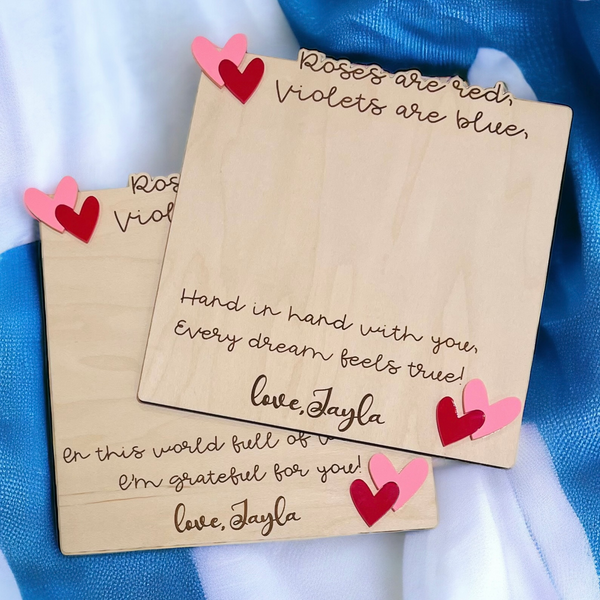 Roses are red,
Violets are blue,
Hand in hand with you,
Every dream feels true!
love, Jayla
In this world full of
I'm grateful for you!
love, Jayla